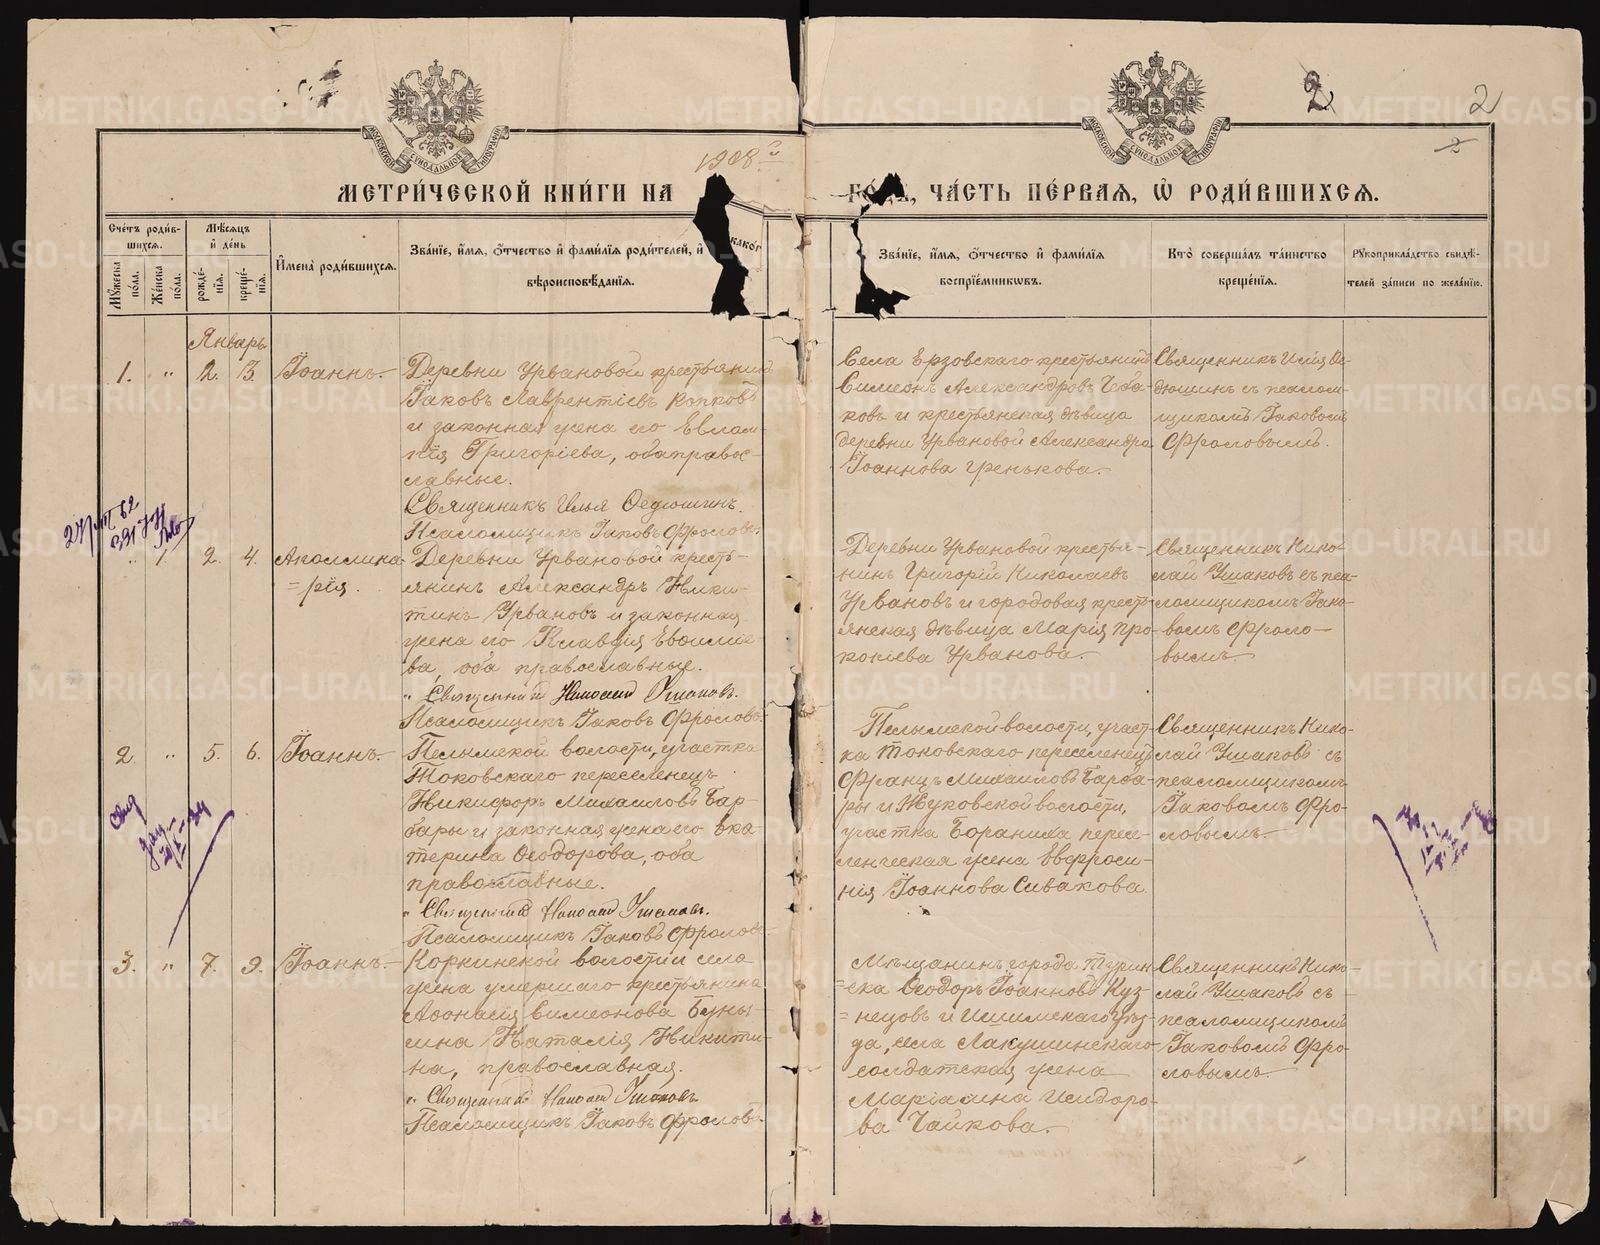 2
2
2
МОСКОВСКОЙ СѴНОДАЛЬНОЙ ТИПОГРАФІИ
МОСКОВСКОЙ СѴНОДАЛЬНОЙ ТИПОГРАФІИ
1908 г.
МЕТРИ́ЧЕСКОЙ КНИ́ГИ НА
ГО́ДЪ, ЧА́СТЬ ПЕ́РВАЯ, Ѡ҆ РОДИ́ВШИХСЯ.
Сче́тъ роди́в-
шихся.
Мꙋ́жеска по́ла.
Же́нска по́ла.
Мѣ́сяцъ
и҆ де́нь
рожде́-нїя.
креще́-нїя.
И҆мена̀ роди́вшихся.
Зва́нїе, и҆́мя, ѻ҆́тчество и҆ фами́лїя роди́телей, и҆ како́г
вѣроисповѣ́данїя.
Зва́нїе, и҆́мя, ѻ҆́тчество и҆ фами́лїя
воспрїе́мникѡвъ.
Кто̀ соверша́лъ та́инство
креще́нїя.
Рꙋкоприкла́дство свидѣ́-
телей за́писи по жела́нїю.
Январь
1. " 2. 3. Іоаннъ.
Деревни Урвановой крестьянинъ
Іаковъ Лаврентіевъ Копковъ
и законная жена его Евлам-
пія Григоріева, оба правос-
лавные.
Священникъ Илья Ѳедюшинъ.
Псаломщикъ Іаковъ Фроловъ.
Села Ерзовскаго крестьянинъ
Симеонъ Александровъ Чеба-
ковъ и крестьянская дѣвица
деревни Урвановой Александра
Іоаннова Гренькова.
Священникъ Илія Ѳе-
дюшинъ съ псалом-
щикомъ Іаковомъ
Фроловымъ.
" 1 2. 4. Аполлина-
=рія.
Деревни Урвановой кресть-
янинъ Александръ Ники-
тинъ Урвановъ и законная
жена его Клавдія Евѳиміе-
ва, оба православные.
" Священникъ Николай Ушаковъ.
Псаломщикъ Іаковъ Фроловъ.
Деревни Урвановой крестья-
нинъ Григорій Николаевъ
Урвановъ и городовая кресть-
янская дѣвица Марія Про-
копіева Урванова.
Священникъ Нико-
лай Ушаковъ съ пса-
ломщикомъ Іако-
вомъ Фроло-
вымъ.
2 " 5. 6. Іоаннъ.
Пелымской волости, участка
Токовскаго переселенецъ
Никифоръ Михаиловъ Бар-
бары и законная жена его Ека-
терина Ѳеодорова, оба
православные.
" Священникъ Николай Ушаковъ.
Псаломщикъ Іаковъ Фроловъ.
Пелымской волости, участ-
ка Токовскаго переселенецъ
Францъ Михаиловъ Барба-
ры и Жуковской волости,
участка Бораниха пересе-
ленческая жена Евфроси-
нія Іоаннова Сивакова
Священникъ Нико-
лай Ушаковъ съ
псаломщикомъ
Іаковомъ Фро-
ловымъ.
3. " 7. 9. Іоаннъ.
Коркинской волости и села
жена умершаго крестьянина
Аѳонасія Симеонова Буны-
сина Наталія Никити-
на, православная.
" Священникъ Николай Ушаковъ
Псаломщикъ Іаковъ Фроловъ.
Мѣщанинъ города Турин-
=ска Ѳеодоръ Іоанновъ Куз-
=нецовъ и Ишимскаго уѣз-
да, села Лакушинскаго
солдатская жена
Маріамна Исидоро-
ва Чайкова.
Священникъ Нико-
лай Ушаковъ съ
псаломщикомъ
Іаковомъ Фро-
ловымъ.
METRIKI.GASO-URAL.RU